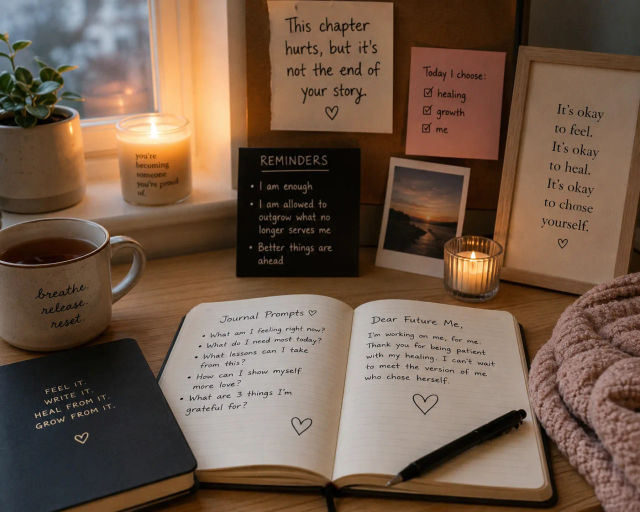 This chapter
hurts, but it's
not the end of
your story.
♡
Today I choose:
☑ healing
☑ growth
☑ me
It's okay
to feel.
It's okay
to heal.
It's okay
to choose
yourself.
♡
you're
becoming
someone
you're proud
of.
REMINDERS
• I am enough
• I am allowed to
outgrow what no
longer serves me
• Better things are
ahead
breathe.
release.
reset.
FEEL IT.
WRITE IT.
HEAL FROM IT.
GROW FROM IT.
♡
Journal Prompts ♡
• What am I feeling right now?
• What do I need most today?
• What lessons can I take
from this?
• How can I show myself
more love?
• What are 3 things I'm
grateful for?
♡
Dear Future Me,
I'm working on me, for me.
Thank you for being patient
with my healing. I can't wait
to meet the version of me
who chose herself.
♡